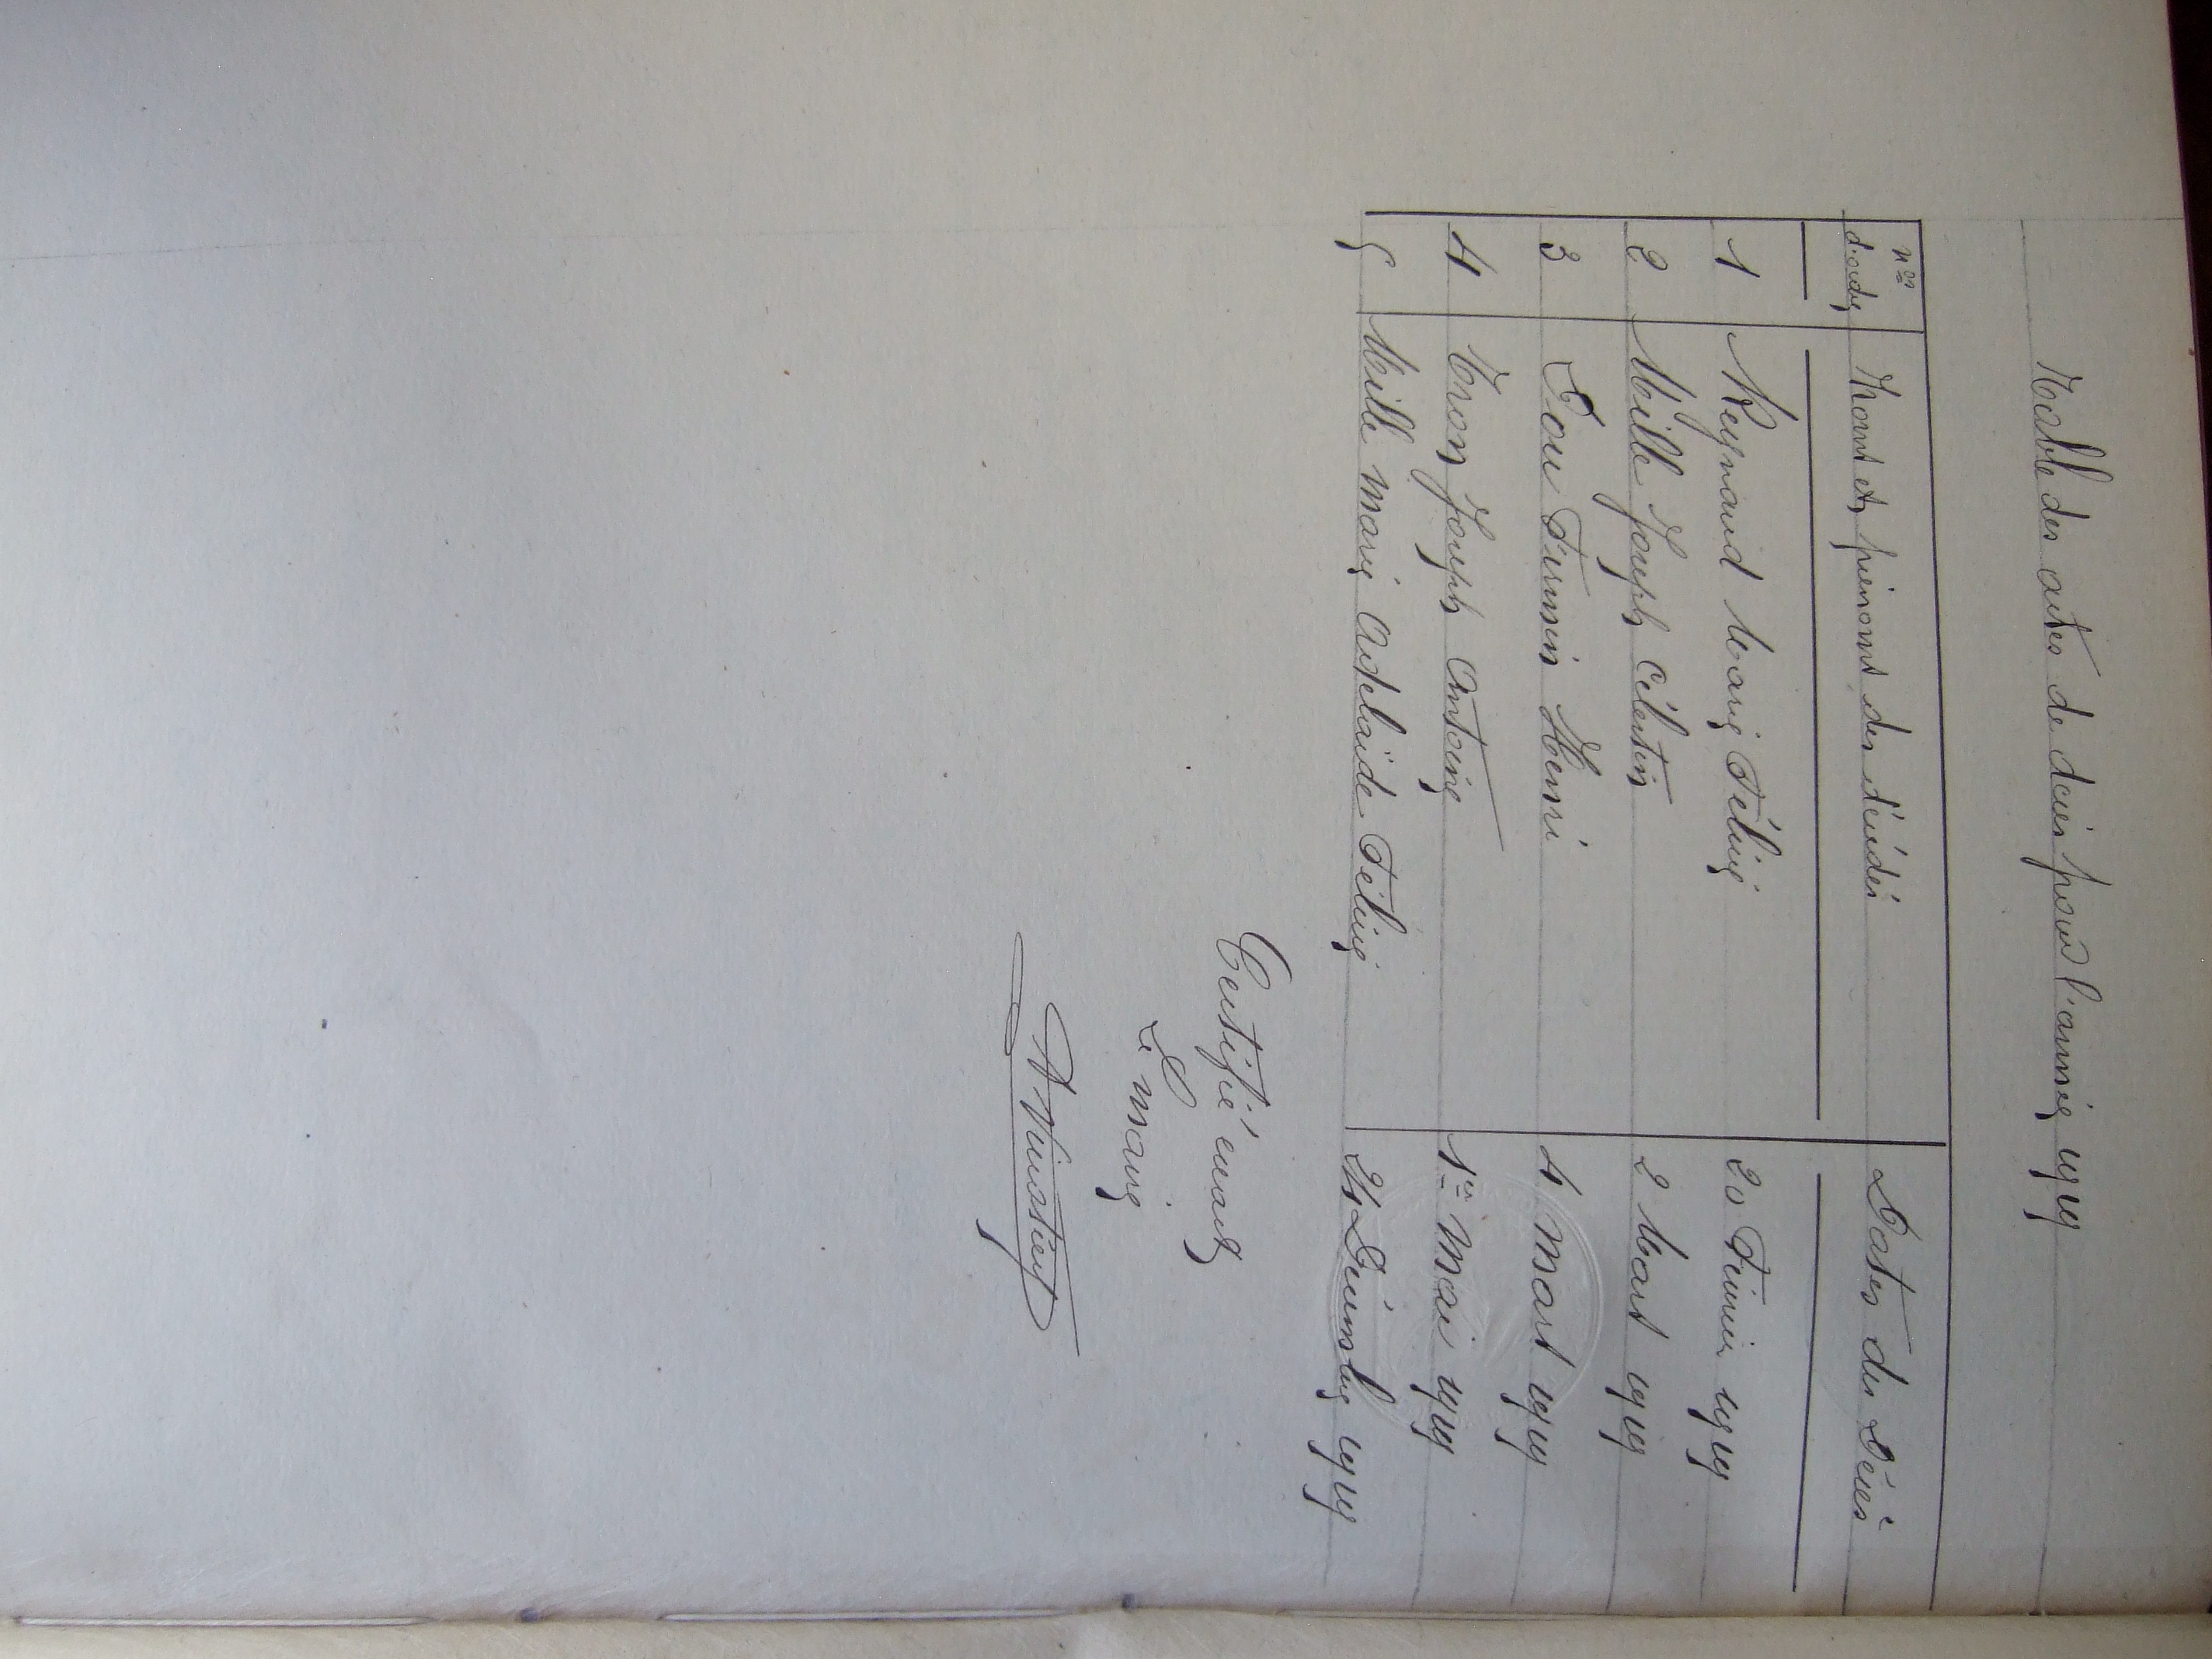 Table des actes de décès pour l'année 1919
nos d'ordre
Noms et prénoms des décédés
Dates des Décès
1 Reynaud Marie Félicie 20 Février 1919
2 Meille Joseph Célestin 2 Mars 1919
3 Dou Firmin Henri 4 Mars 1919
4 Tron Joseph Antoine 1er Mai 1919
5 Meille Marie Adélaïde Félicie 24 Décembre 1919
Certifié exact
Le maire